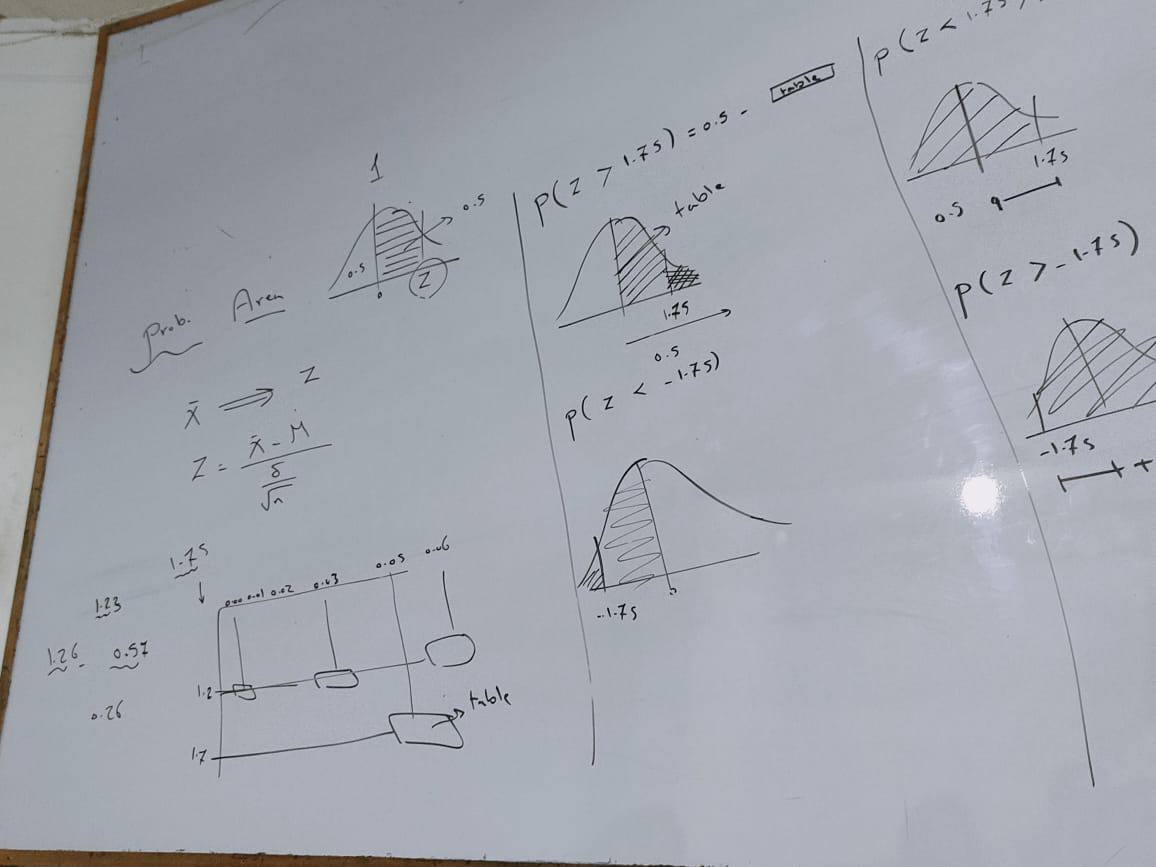 1
0.5
0.5
0
Z
Prob. Area
x̄ ⟹ Z
Z = (x̄ - M) / (δ / √n)
1.75
1.23
1.26 - 0.57
0.26
0.00 0.01 0.02 0.03 0.05 0.06
1.2
1.7
table
P(Z > 1.75) = 0.5 - table
table
1.75
0.5
P(Z < -1.75)
-1.75
P(Z < 1.75)
1.75
0.5
P(Z > -1.75)
-1.75
+